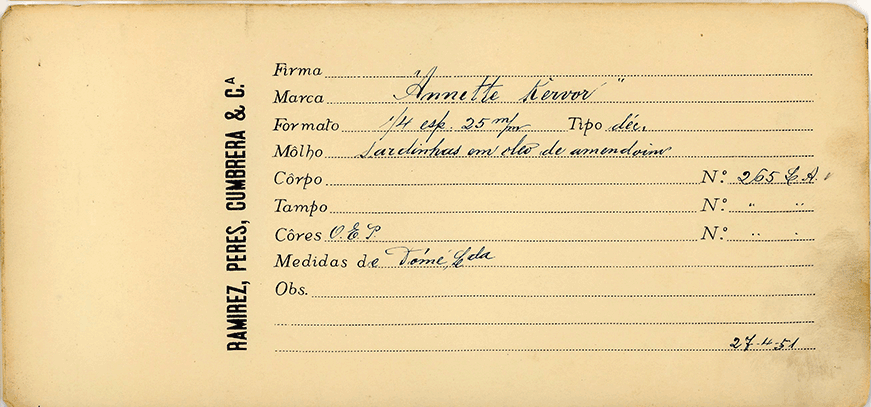 RAMIREZ, PERES, CUMBRERA & C.ᴬ
Firma
Marca "Annette Kervor"
Formato 1/4 esp. 25 m/m Tipo déc.
Môlho sardinhas em oleo de amendoim
Côrpo N.º 265 L.A.
Tampo N.º " "
Côres O.E.P. N.º " "
Medidas de Tomé, Lda
Obs.
27-4-51